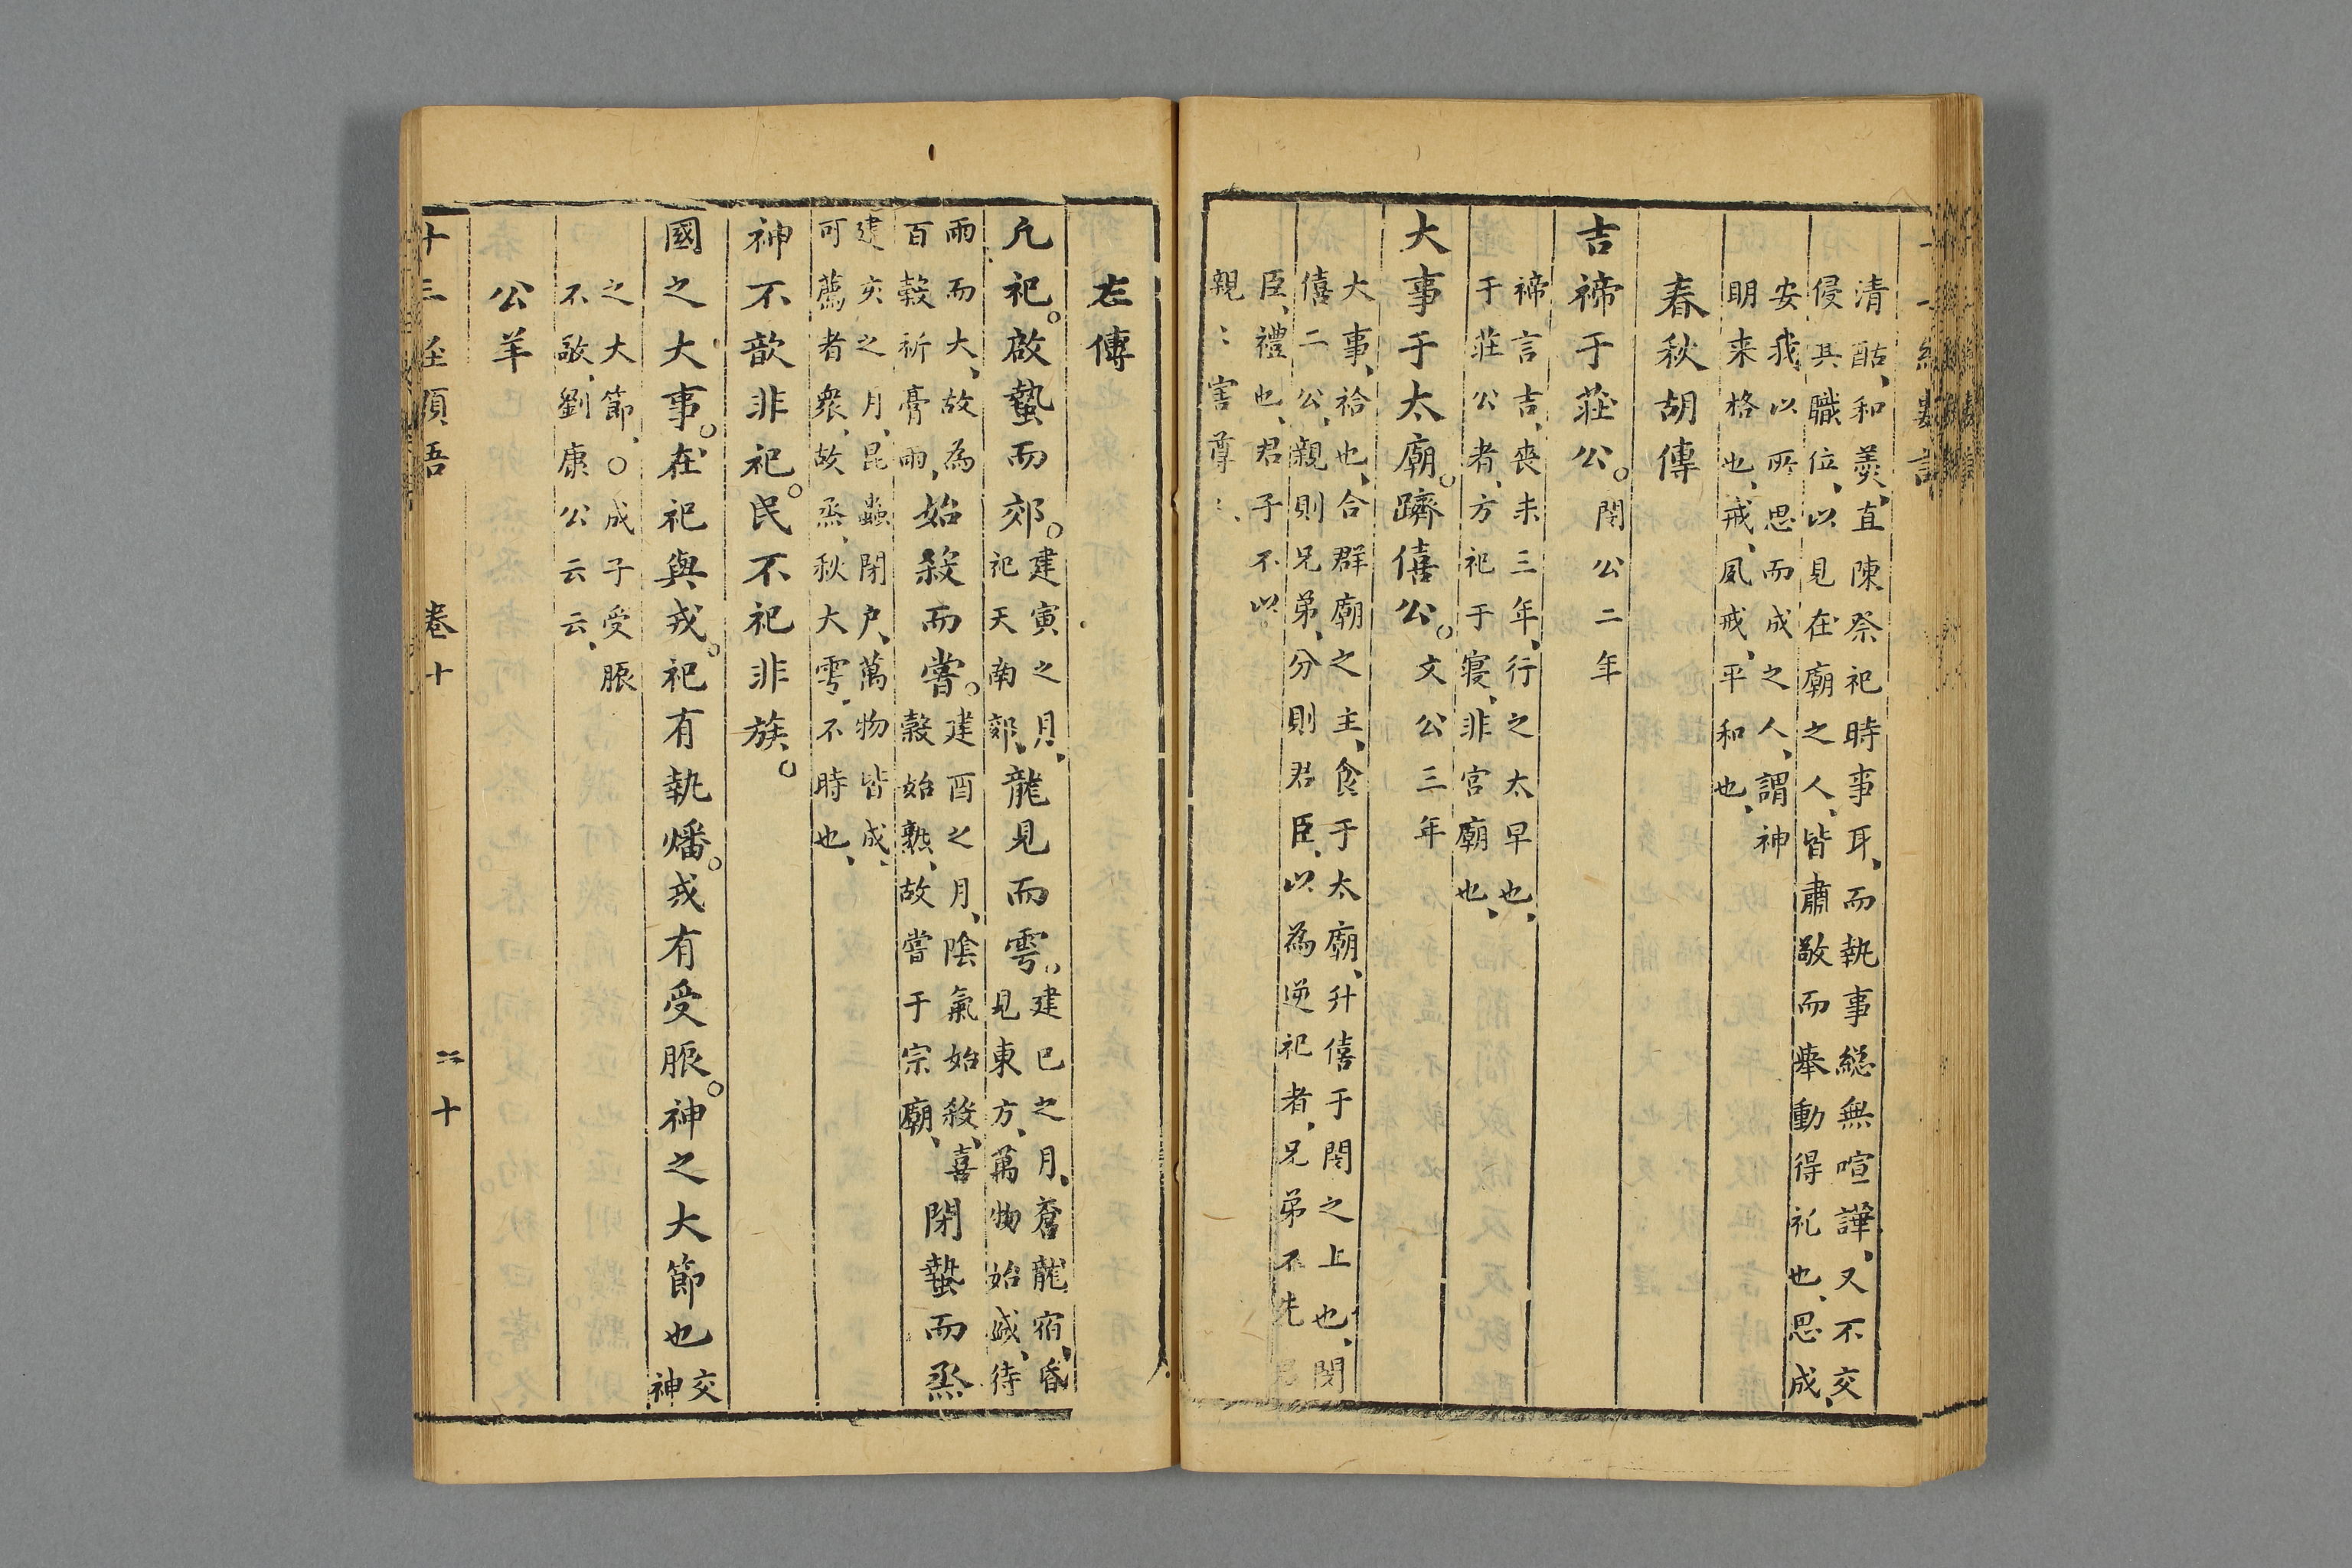 清酤、和羮、直陳祭祀時事耳、而執事総無喧譁、又不交
侵其職位、以見在廟之人、皆肅敬而舉動得礼也、思成、
安我以所思而成之人、謂神
明来格也、戒、夙戒、平、和也、
春秋胡傳
吉禘于莊公。閔公二年
禘言吉、喪未三年、行之太早也、
于莊公者、方祀于寢、非宮廟也、
大事于太廟。躋僖公。文公三年
大事、祫也、合群廟之主、食于太廟、升僖于閔之上也、閔
僖二公、親則兄弟、分則君臣、以為逆祀者、兄弟不先
臣、禮也、君子不以
親〻害尊〻、
左傳
凡祀。啟蟄而郊。建寅之月、
祀天南郊、龍見而雩。建巳之月、蒼龍宿、昏
見東方、萬物始盛、待
雨而大、故為
百穀祈膏雨、始殺而嘗。建酉之月、陰氣始殺、喜
穀始熟、故嘗于宗廟、閉蟄而烝
建亥之月、昆蟲閉户、萬物皆成、
可薦者衆、故烝、秋大雩、不時也、
神不歆非祀。民不祀非族。
國之大事。在祀與戎。祀有執燔。戎有受脤。神之大節也交
神
之大節、○成子受脤
不敬、劉康公云云、
公羊
卷十
二十